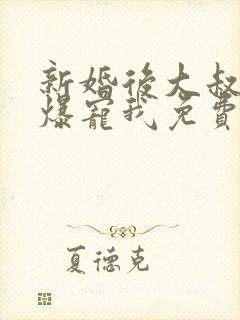 新婚後大叔
爆寵我免費
夏德克